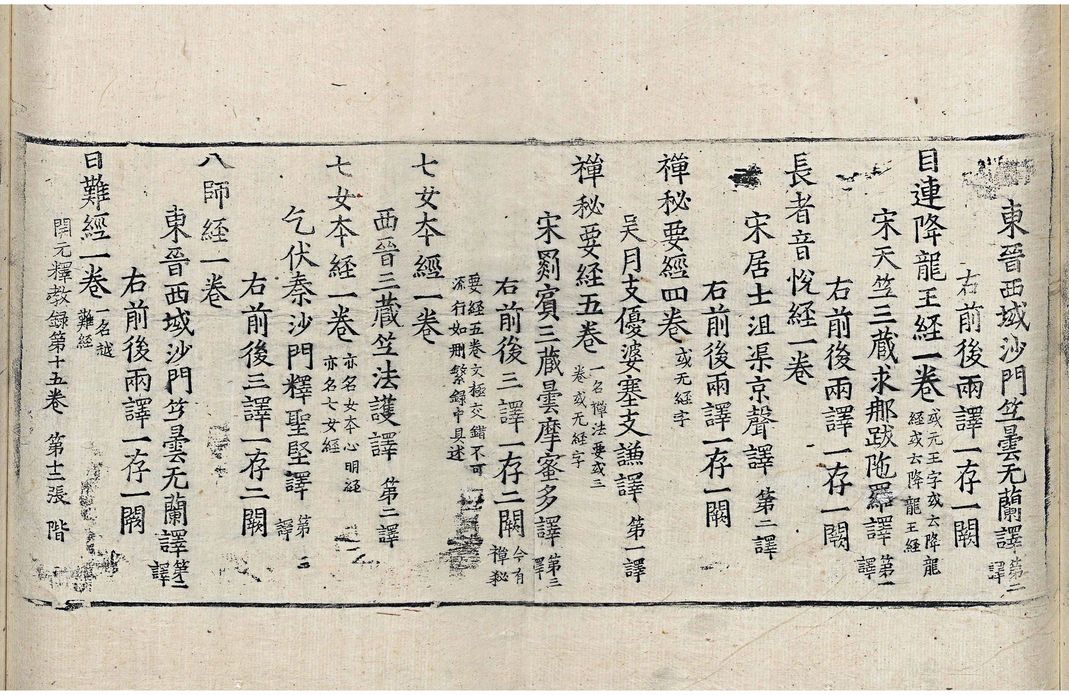 東晉西域沙門竺曇无蘭譯第二譯
右前後兩譯一存一闕
目連降龍王經一卷或元王字或云降龍經或云降龍王經
宋天竺三藏求那跋陁羅譯第一譯
右前後兩譯一存一闕
長者音悅經一卷
宋居士沮渠京聲譯第二譯
右前後兩譯一存一闕
禪秘要經四卷或无經字
吳月支優婆塞支謙譯第一譯
禪秘要經五卷一名禪法要或三卷或无經字
宋罽賓三藏曇摩蜜多譯第三譯
右前後三譯一存二闕今有禪秘
要經五卷文極交錯不可流行如刪繁錄中具述
七女本經一卷
西晉三藏竺法護譯第二譯
七女本經一卷亦名女本心明經亦名七女經
乞伏秦沙門釋聖堅譯第三譯
右前後三譯一存二闕
八師經一卷
東晉西域沙門竺曇无蘭譯第二譯
右前後兩譯一存一闕
日難經一卷一名越難經
開元釋教錄第十五卷 第十二張 階